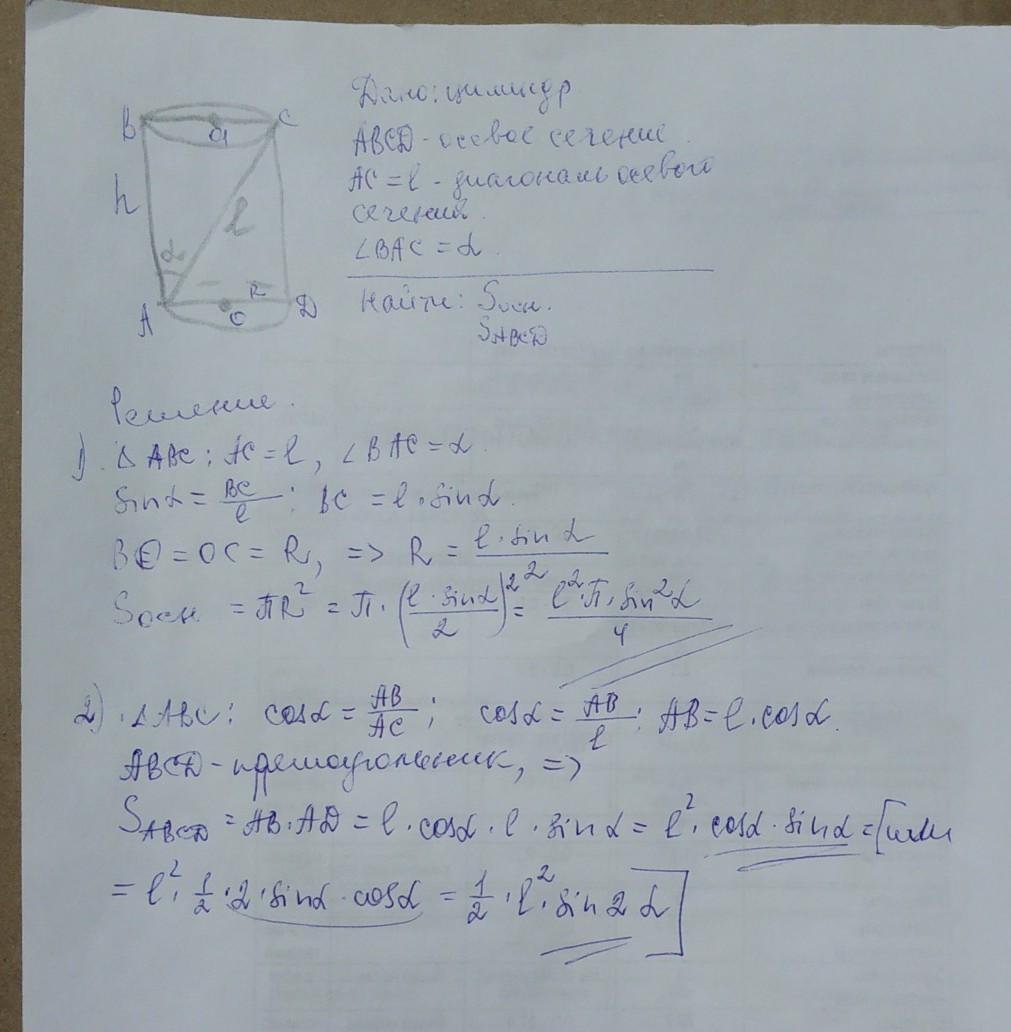 Дано: цилиндр
ABCD - осевое сечение.
AC = l - диагональ осевого
сечения.
∠BAC = α.
Найти: Sосн.
SABCD
B O1 C
h
α
l
R
A O D
Решение.
1). △ ABC: AC = l, ∠BAC = α.
sinα = BC/l ; BC = l · sinα.
BO = OC = R, => R = l · sin α / 2
Sосн = πR² = π · (l · sinα / 2)² = l² · π · sin²α / 4
2). △ABC: cosα = AB/AC ; cosα = AB/l ; AB = l · cosα.
ABCD - прямоугольник, =>
SABCD = AB · AD = l · cosα · l · sin α = l² · cosα · sinα = [или
= l² · 1/2 · 2 · sinα · cosα = 1/2 · l² · sin 2 α]